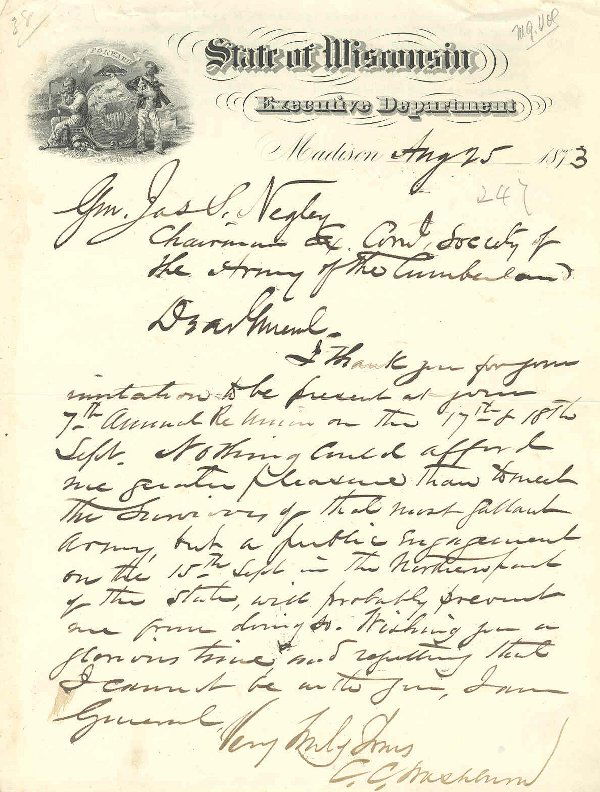 38
M.Q. Vol
FORWARD
State of Wisconsin
Executive Department
Madison Aug 25 1873
247
Gen. Jas S. Negley
Chairman Ex. Com. Society of
the Army of the Cumberland
Dear General.
I thank you for your
invitation to be present at your
7th Annual Re Union on the 17th & 18th
Sept. Nothing could afford
me greater pleasure than to meet
the Survivors of that most gallant
Army, but a public Engagement
on the 15th Sept in the Northern part
of the State, will probably prevent
me from doing so. Wishing you a
glorious time and regretting that
I cannot be with you, I am
General,
Very truly Yours
C. C. Washburn